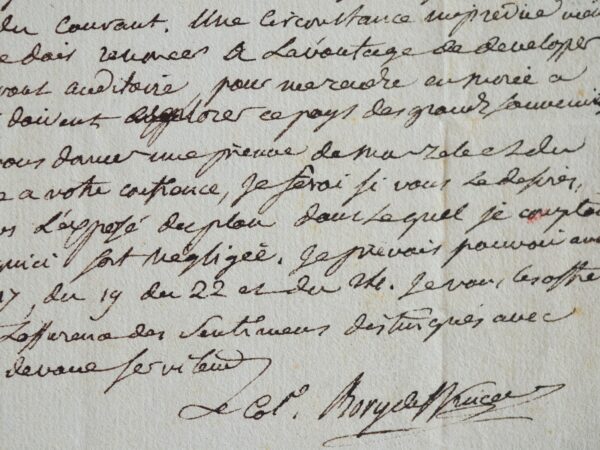 du Courant. Une Circonstance imprevue
dois renoncer à Lavantage de developper
auditoire, pour me rendre en morée a
doivent explorer ce pays des grands Souvenirs
vous donner une preuve de mon Zele et du
a votre Confiance, je ferai si vous le desirés,
L'exposé du plan dans lequel je comptai
fort negligeé. je prevois pouvoir
17, du 19 du 22 et du 24. je vous les offre
Lassurence des Sentimens distingués avec
devoué Serviteur
Le Col. Bory de St Vincent